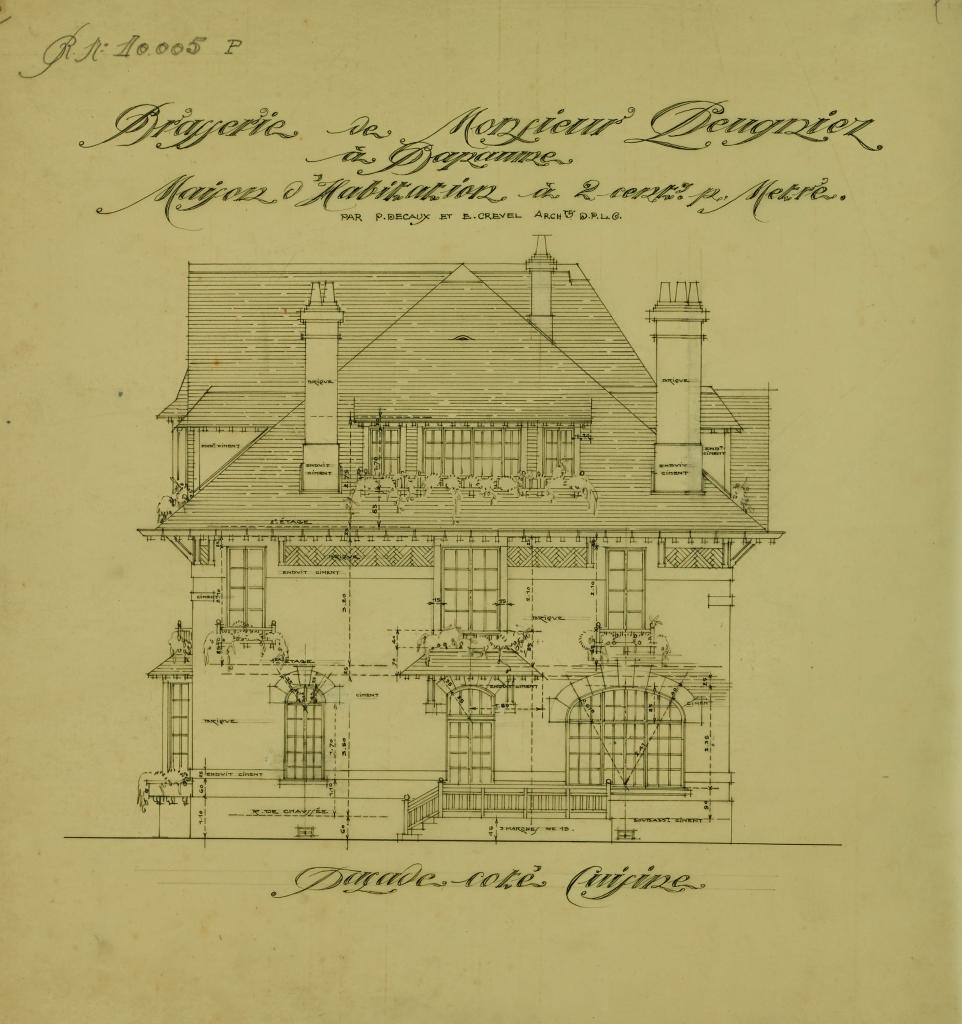 R. N: 10.005 P
Brasserie de Monsieur Peugniez
à Bapaume
Maison d'Habitation à 2 centrs p. Metre.
PAR P. DECAUX ET E. CREVEL ARCHTS D.P.L.G.
BRIQUE
BRIQUE
ENDT CIMENT
ENDT CIMENT
ENDUIT CIMENT
ENDUIT CIMENT
2E ETAGE
BRIQUE
ENDUIT CIMENT
CIMENT
3.20
2.10
2.10
15
15
BRIQUE
1ER ETAGE
ENDUIT CIMENT
CIMENT
CIMENT
BRIQUE
1.70
3.50
2.35
ENDUIT CIMENT
60
1.10
R. DE CHAUSSÉE
60
90
3 MARCHES DE 15.
SOUBASST CIMENT
Façade coté Cuisine